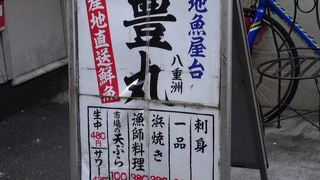 地魚屋台
豊丸
八重洲
産地直送鮮魚
刺身
一品
浜焼き
漁師料理
市場の天ぷら
生中480円
サワー